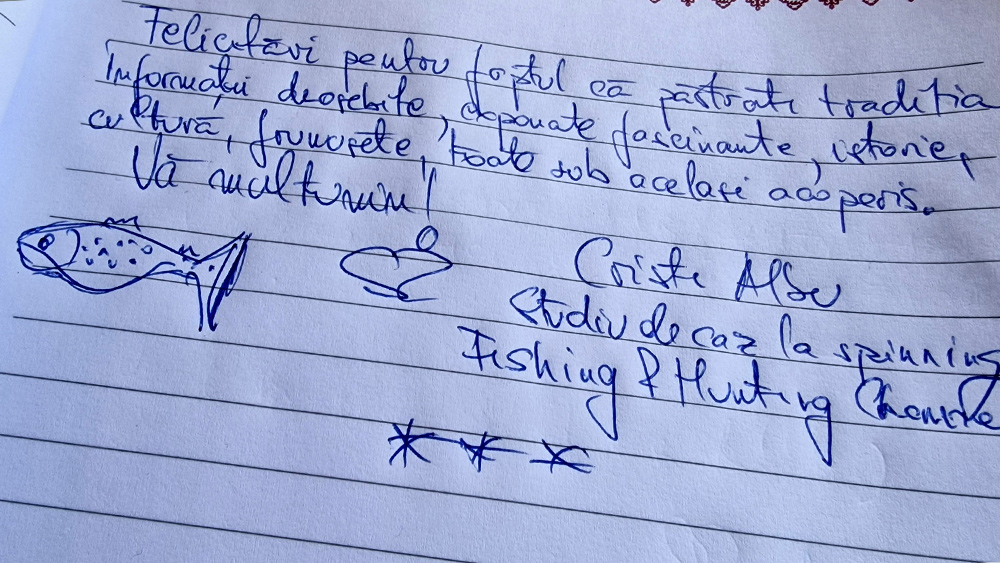 Felicitări pentru foptul că păstrați tradiția
Informații deosebite, exponate fascinante, istorie,
cultură, frumusețe, toate sub același acoperiș.
Vă mulțumim!
Criste Albu
Studiu de caz la spinning
Fishing & Hunting Channel